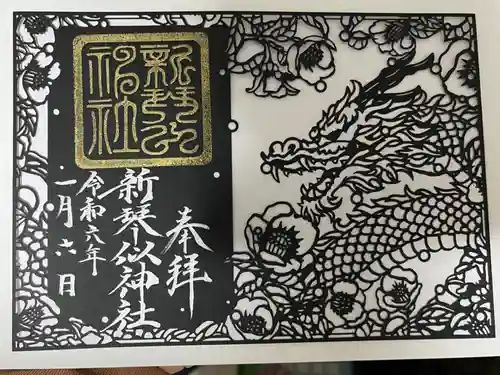 奉拝
新琴似神社
令和六年
一月六日
新琴似
神社